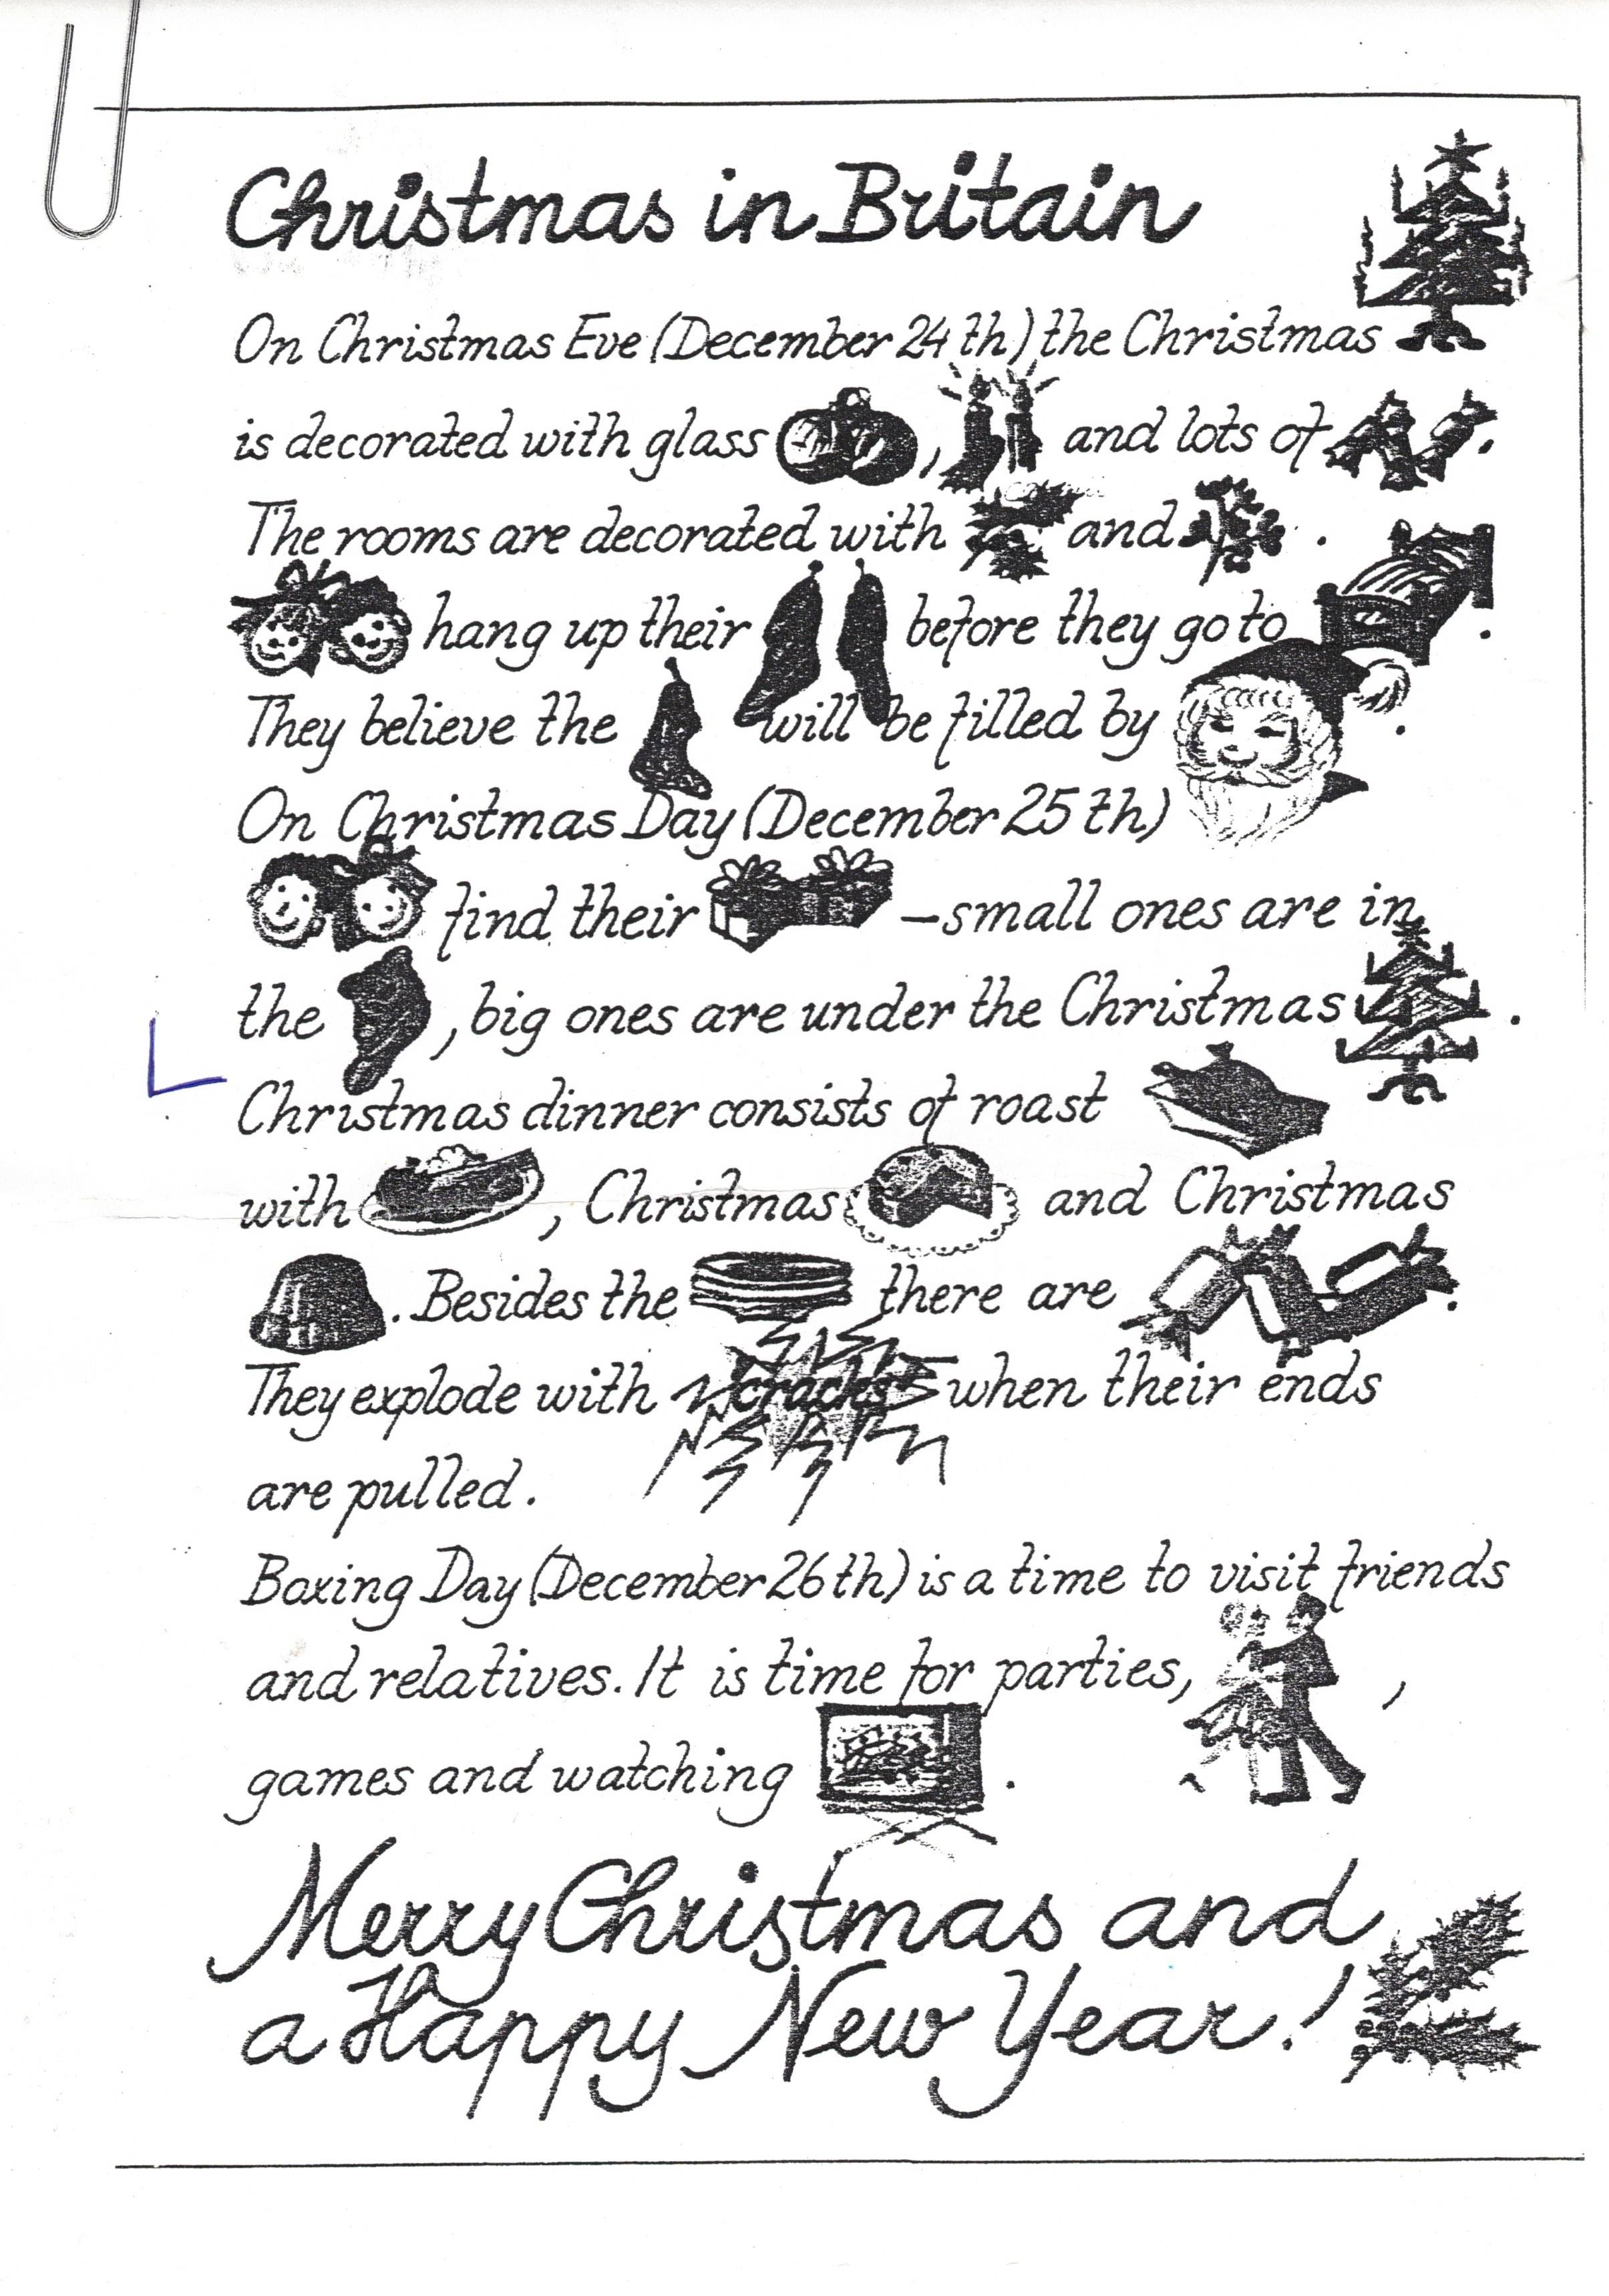 Christmas in Britain
On Christmas Eve (December 24th) the Christmas
is decorated with glass , and lots of .
The rooms are decorated with and .
hang up their before they go to .
They believe the will be filled by .
On Christmas Day (December 25th)
find their – small ones are in
the , big ones are under the Christmas .
Christmas dinner consists of roast
with , Christmas and Christmas
. Besides the there are .
They explode with cracks when their ends
are pulled.
Boxing Day (December 26th) is a time to visit friends
and relatives. It is time for parties, ,
games and watching .
Merry Christmas and
a Happy New Year!